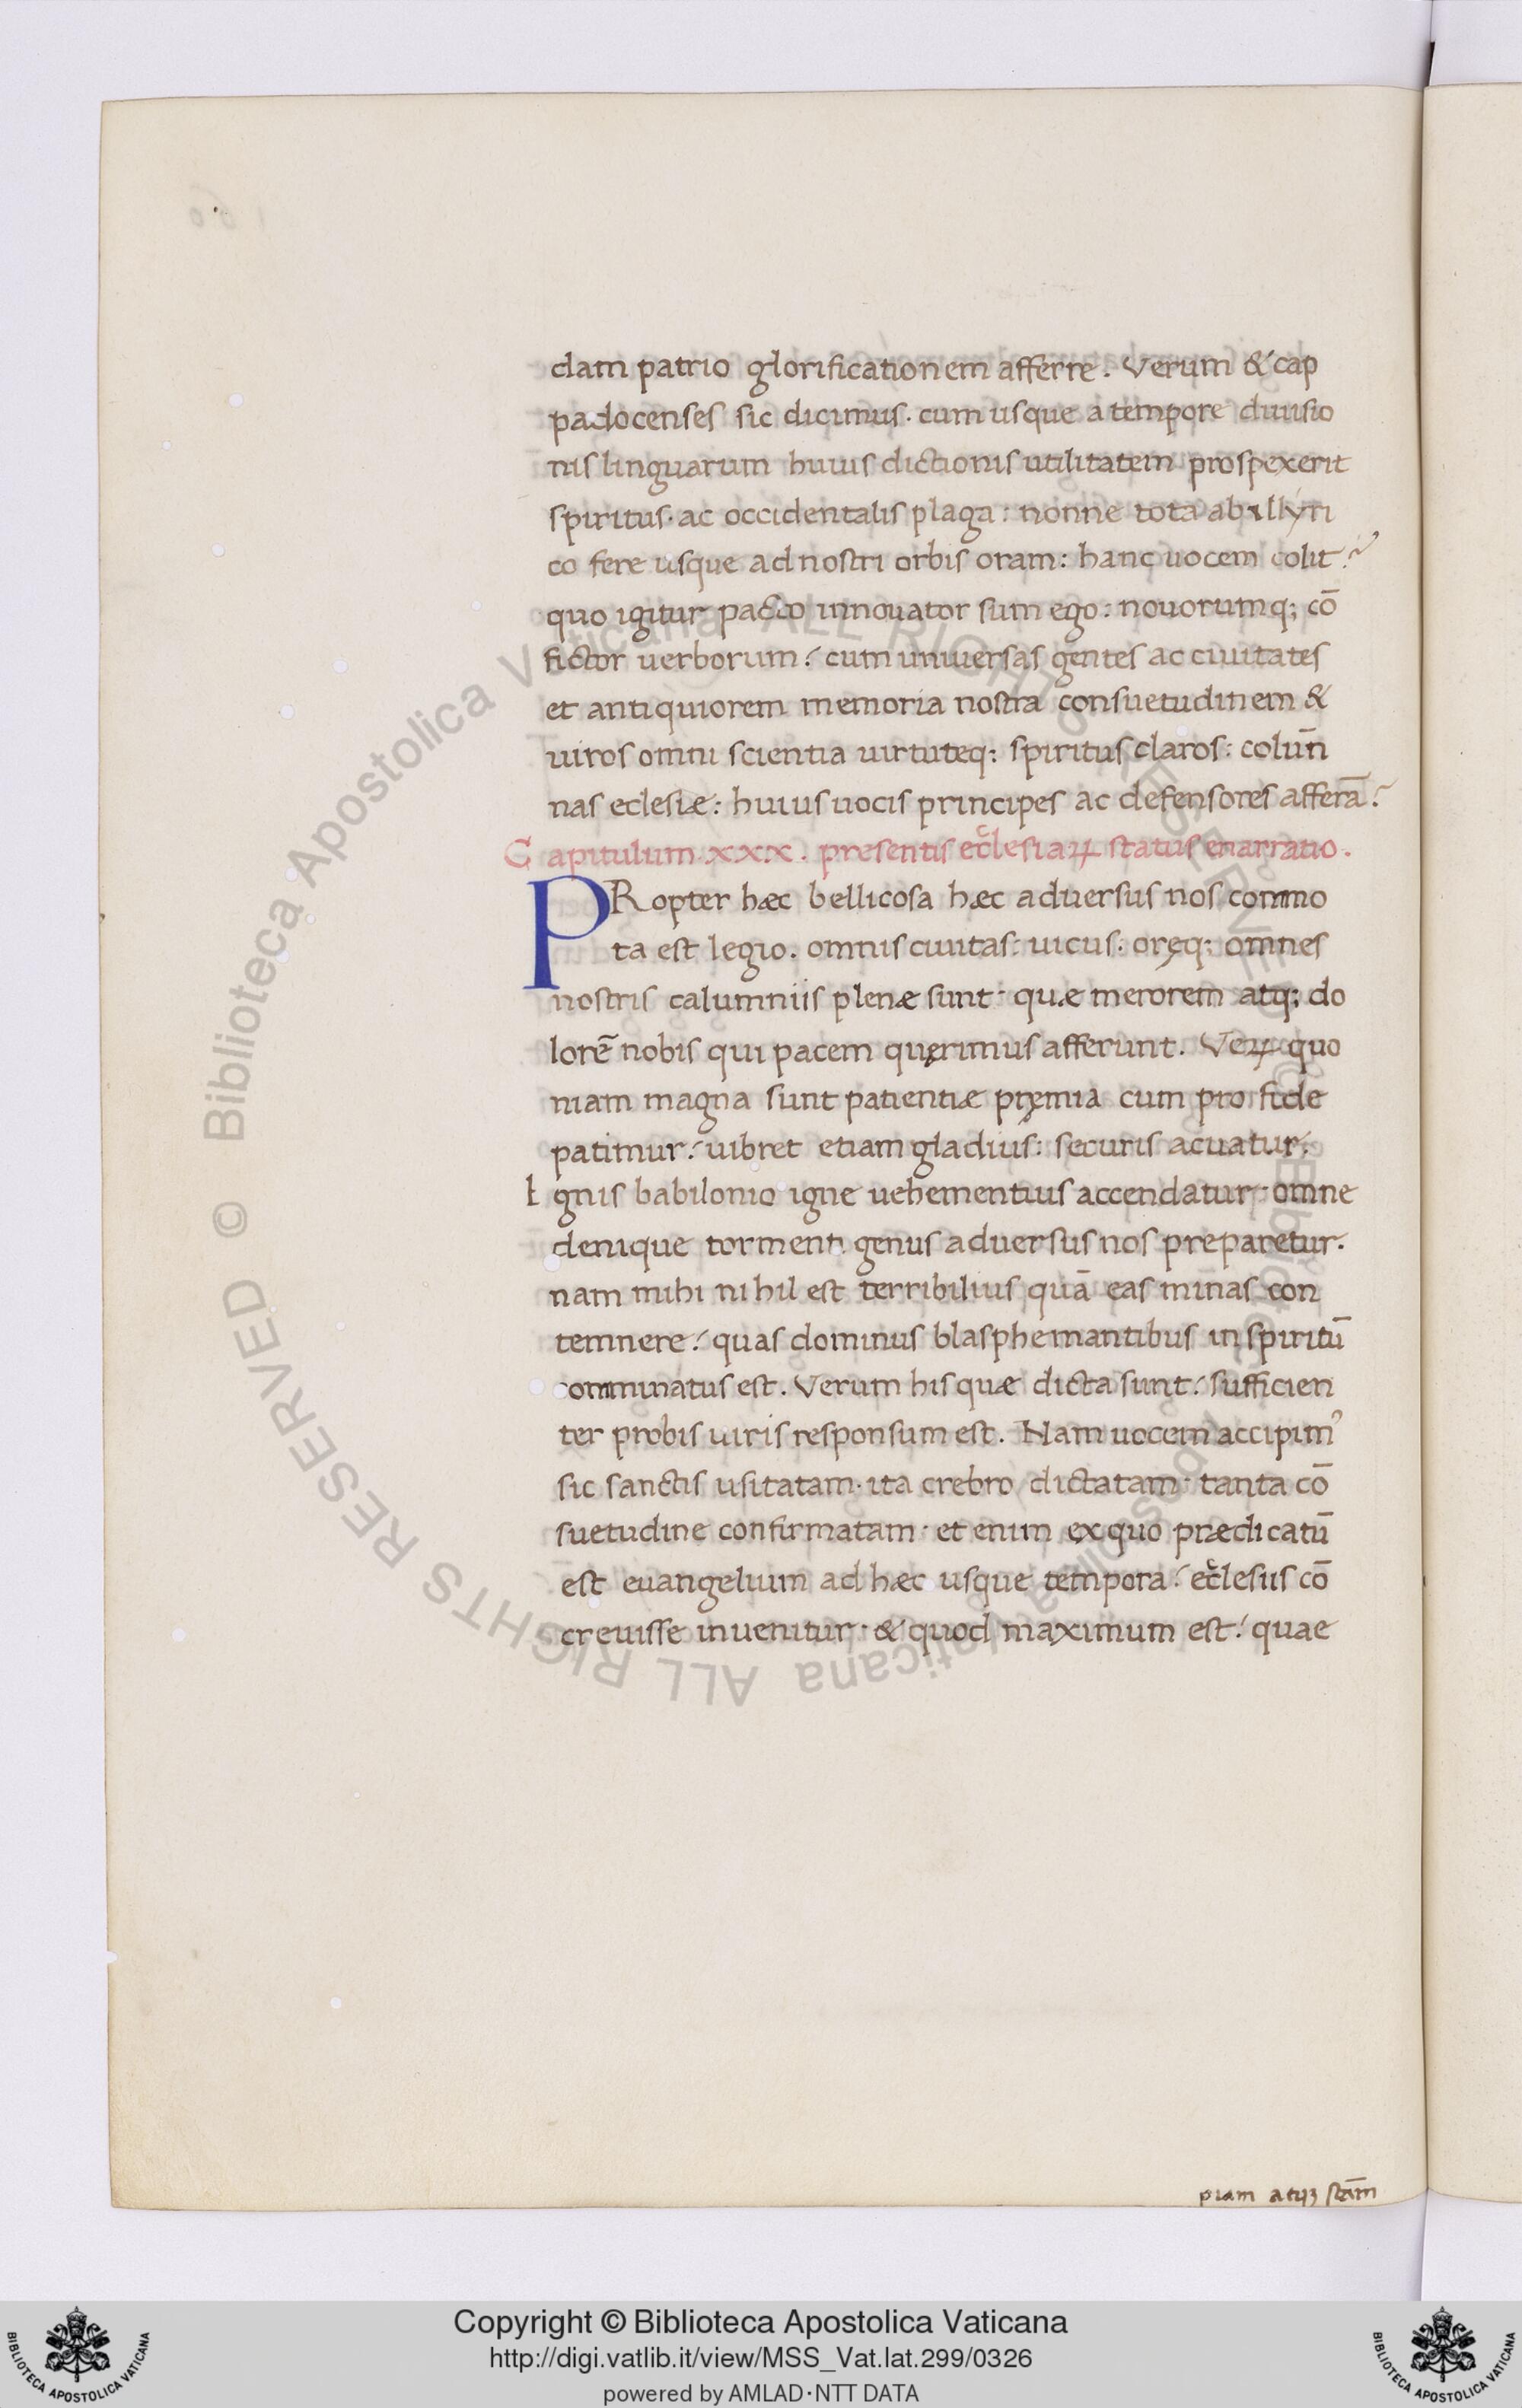 dam patrio glorificationem afferre. Verum & cap
padocenses sic dicimus. cum usque a tempore diuisio
nis linguarum huius dictionis utilitatem prospexerit
spiritus. ac occidentalis plaga: nonne tota ab illyri
co fere usque ad nostri orbis oram: hanc uocem colit?
quo igitur pacto innouator sum ego: nouorumq; cō
fictor uerborum? cum uniuersas gentes ac ciuitates
et antiquiorem memoria nostra consuetudinem &
uiros omni scientia uirtuteq; spiritus claros: colum̄
nas eclesiæ: huius uocis principes ac defensores afferā?
Capitulum. xxx. presentis ecclesiaꝝ status enarratio.
PRopter hæc bellicosa hæc aduersus nos commo
ta est legio. omnis ciuitas: uicus. oręq; omnes
nostris calumniis plenæ sunt. quæ merorem atq; do
lorē nobis qui pacem quęrimus afferunt. Veꝝ quo
niam magna sunt patientiæ pręmia cum pro fide
patimur: uibret etiam gladius: securis acuatur:
Ignis babilonio igne uehementius accendatur. omne
denique tormenti genus aduersus nos preparetur.
nam mihi nihil est terribilius quā eas minas con
temnere: quas dominus blasphemantibus in spiritū
comminatus est. Verum his quæ dicta sunt: sufficien
ter probis uiris responsum est. Nam uocem accipimꝰ
sic sanctis usitatam. ita crebro dictatam. tanta cō
suetudine confirmatam. et enim ex quo prædicatū
est euangelium ad hæc usque tempora: ecclesiis cō
creuisse inuenitur. & quod maximum est: quae
piam atqꝫ sc̄am
Biblioteca Apostolica Vaticana ALL RIGHTS RESERVED ©
Copyright © Biblioteca Apostolica Vaticana
http://digi.vatlib.it/view/MSS_Vat.lat.299/0326
powered by AMLAD·NTT DATA
BIBLIOTECA APOSTOLICA VATICANA
BIBLIOTECA APOSTOLICA VATICANA